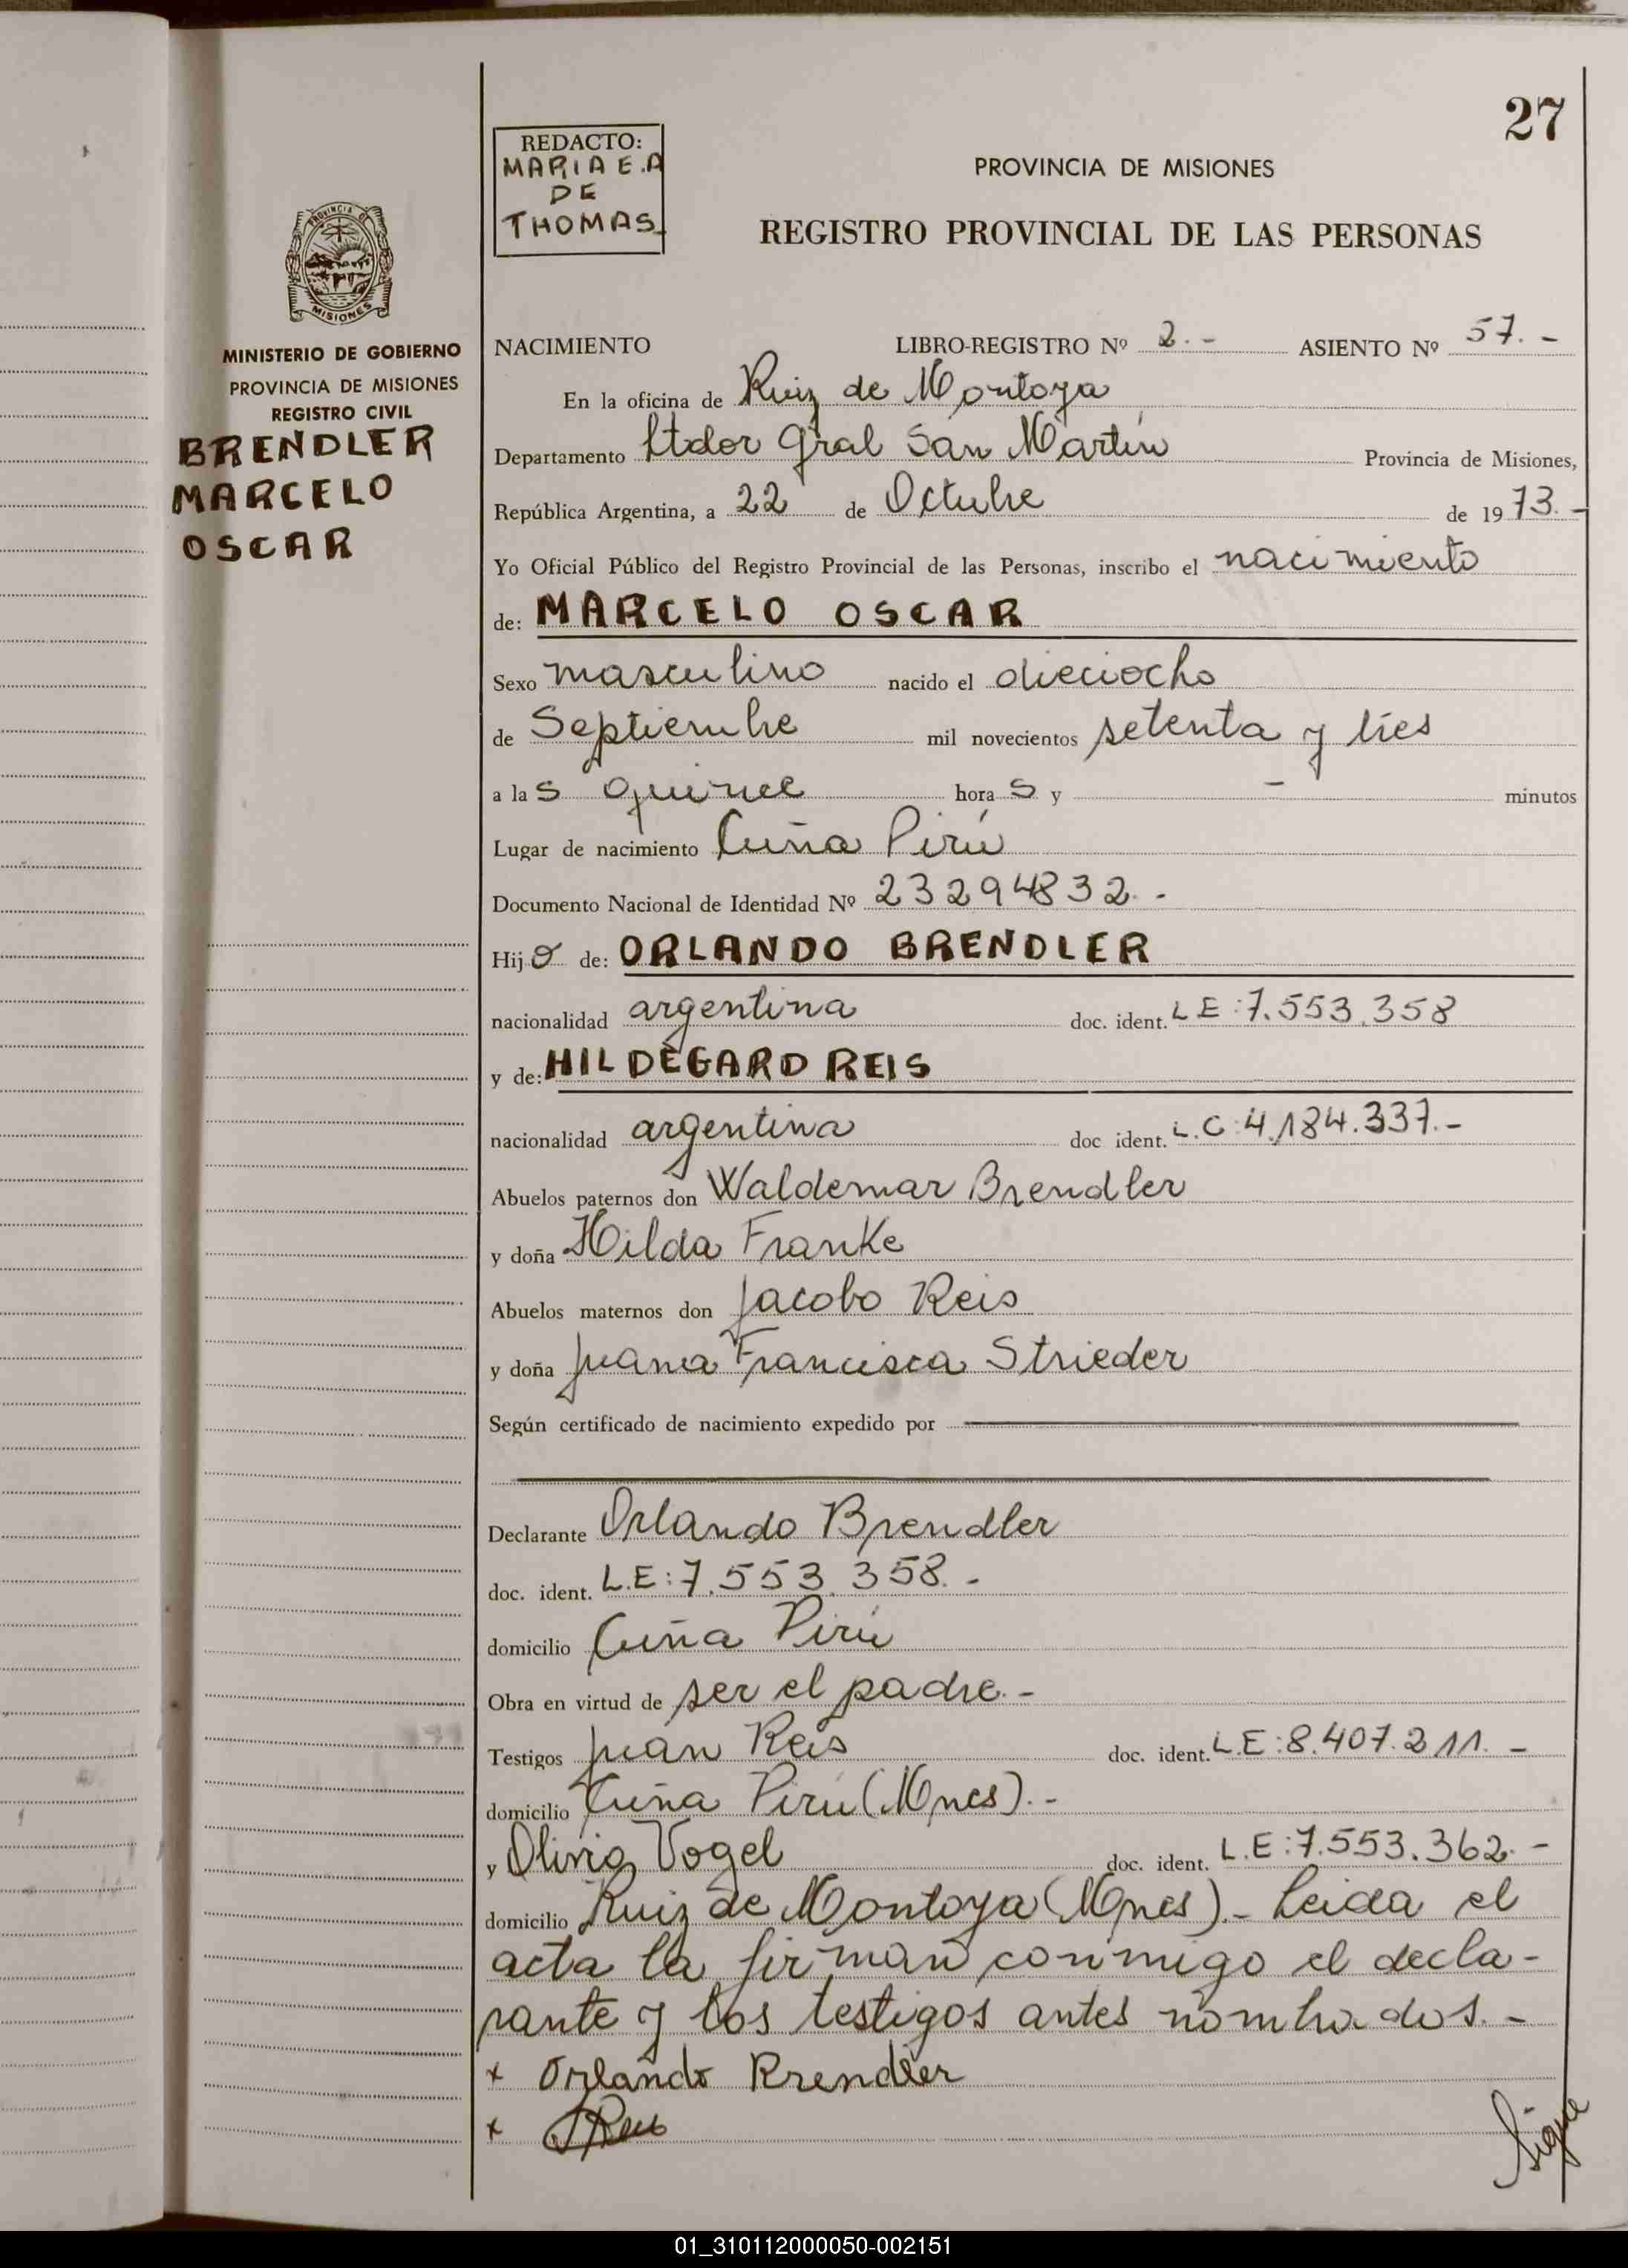 27
REDACTO:
MARIA E.A
DE
THOMAS
PROVINCIA DE MISIONES
REGISTRO PROVINCIAL DE LAS PERSONAS
PROVINCIA DE
MISIONES
MINISTERIO DE GOBIERNO
PROVINCIA DE MISIONES
REGISTRO CIVIL
BRENDLER
MARCELO
OSCAR
NACIMIENTO LIBRO-REGISTRO Nº 2.- ASIENTO Nº 57.-
En la oficina de Ruiz de Montoya
Departamento Ltdor Gral San Martín Provincia de Misiones,
República Argentina, a 22 de Octubre de 1973.-
Yo Oficial Público del Registro Provincial de las Personas, inscribo el nacimiento
de: MARCELO OSCAR
Sexo masculino nacido el dieciocho
de Septiembre mil novecientos setenta y tres
a las quince horas y - minutos
Lugar de nacimiento Cuña Pirú
Documento Nacional de Identidad Nº 23294832.-
Hijo de: ORLANDO BRENDLER
nacionalidad argentina doc. ident. LE:7.553.358
y de: HILDEGARD REIS
nacionalidad argentina doc ident. L.C:4.184.337.-
Abuelos paternos don Waldemar Brendler
y doña Hilda Franke
Abuelos maternos don Jacobo Reis
y doña Juana Francisca Strieder
Según certificado de nacimiento expedido por
Declarante Orlando Brendler
doc. ident. L.E:7.553.358.-
domicilio Cuña Pirú
Obra en virtud de ser el padre.-
Testigos Juan Reis doc. ident. L.E:8.407.211.-
domicilio Cuña Pirú (Mnes).-
y Olivio Vogel doc. ident. L.E:7.553.362.-
domicilio Ruiz de Montoya (Mnes).- Leida el
acta la firman conmigo el decla-
rante y los testigos antes nombrados.-
x Orlando Brendler
x JReis
Sigue
01_310112000050-002151